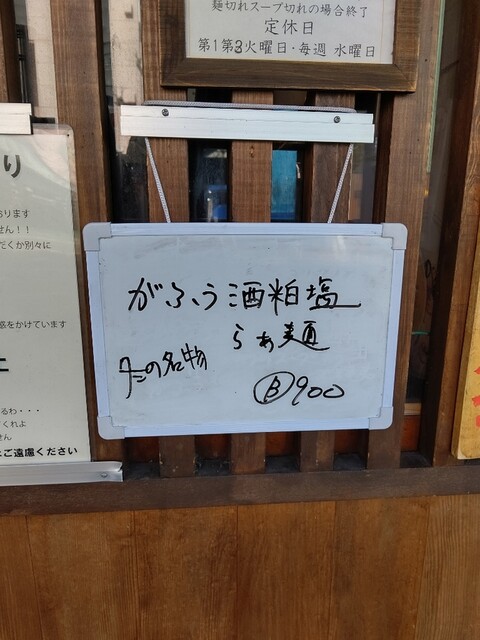 麺切れスープ切れの場合終了
定休日
第1第3火曜日・毎週 水曜日
り
おります
せん！！
だくか別々に
惑をかけています
るわ・・・
くれよ
せん
ご遠慮ください
がふう酒粕塩
らぁ麺
冬の名物
900